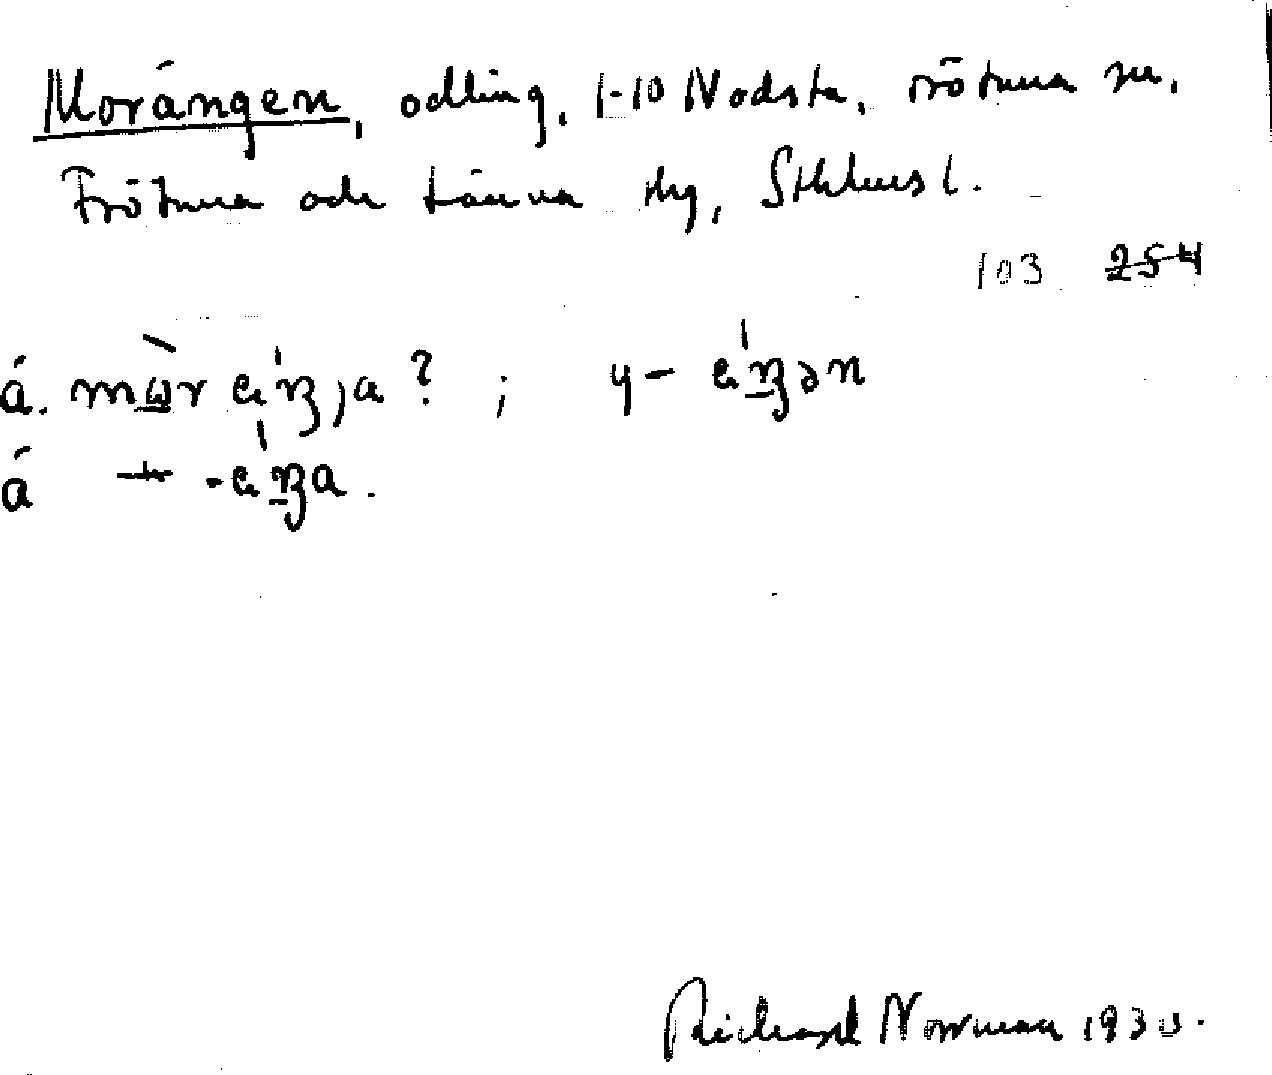 Morängen, odling, 1-10 Nodsta, Frötuna sn,
Frötuna och Länna skg, Sthlms l.
103 254
á. ? ; y-
á
Richard Norrman 1930.